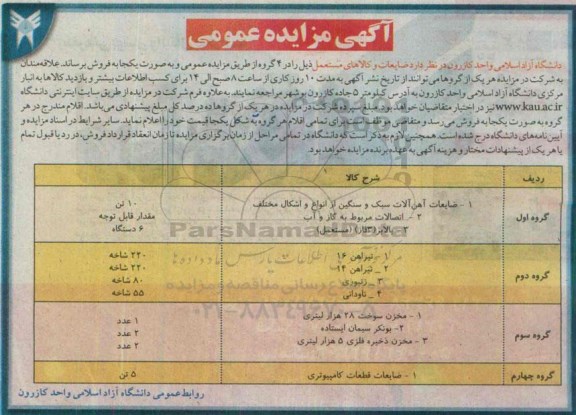 آگهی مزایده عمومی
دانشگاه آزاد اسلامی واحد کازرون در نظر دارد ضایعات و کالاهای مستعمل ذیل را در ۴ گروه از طریق مزایده عمومی و به صورت یکجا به فروش برساند. علاقه‌مندان
به شرکت در مزایده هر یک از گروه‌ها می‌توانند از تاریخ نشر آگهی به مدت ۱۰ روز کاری از ساعت ۸ صبح الی ۱۴ برای کسب اطلاعات بیشتر و بازدید کالاها به انبار
مرکزی دانشگاه آزاد اسلامی واحد کازرون به آدرس کیلومتر ۵ جاده کازرون بوشهر مراجعه نمایند. به علاوه فرم شرکت در مزایده از طریق سایت اینترنتی دانشگاه
www.kau.ac.ir نیز در اختیار متقاضیان خواهد بود. مبلغ سپرده شرکت در مزایده در هر یک از گروه‌ها ده درصد کل مبلغ پیشنهادی می‌باشد. اقلام مندرج در هر
گروه به صورت یکجا به فروش می‌رسد و متقاضی موظف است برای تمامی اقلام هر گروه به شکل یکجا قیمت خود را اعلام نماید. سایر شرایط در اسناد مزایده و
آیین‌نامه‌های دانشگاه درج شده است. همچنین لازم به ذکر است که دانشگاه در تمامی مراحل از زمان برگزاری مزایده تا زمان انعقاد قرارداد فروش، در رد یا قبول تمام
یا هر یک از پیشنهادات مختار و هزینه آگهی به عهده برنده مزایده خواهد بود.
ردیف شرح کالا
گروه اول
۱ - ضایعات آهن‌آلات سبک و سنگین از انواع و اشکال مختلف ۱۰ تن
۲ - اتصالات مربوط به گاز و آب مقدار قابل توجه
۶ دستگاه
ParsNamadData
گروه دوم
۱ - تیرآهن ۱۶ ۲۴۰ شاخه
۲ - تیرآهن ۱۴ ۲۲۰ شاخه
۳ - زنبوری ۸۰ شاخه
۴ - ناودانی ۵۵ شاخه
گروه سوم
۱ - مخزن سوخت ۲۸ هزار لیتری ۱ عدد
۲ - بونکر سیمان ایستاده ۲ عدد
۳ - مخزن ذخیره فلزی ۵ هزار لیتری ۲ عدد
گروه چهارم ۱ - ضایعات قطعات کامپیوتری ۵ تن
روابط عمومی دانشگاه آزاد اسلامی واحد کازرون